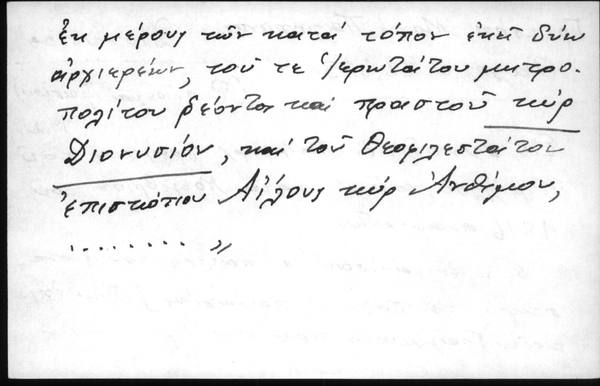 ἐκ μέρους τῶν κατά τόπον ἐκεῖ δύω
ἀρχιερέων, τοῦ τε Ἱερωτάτου μητρο-
πολίτου ῥέοντος καί πραστοῦ κύρ
Διονυσίου, καί τοῦ Θεοφιλεστάτου
ἐπισκόπου Αἴλους κύρ Ἀνθίμου,
......... »